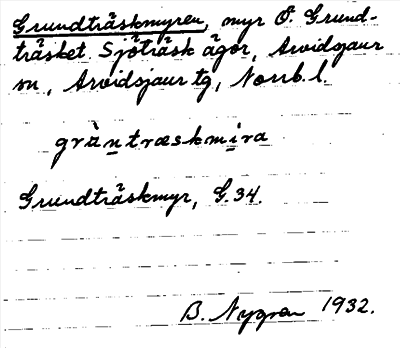 Grundträskmyren, myr Ö. Grund-
träsket Sjöträsk ägor, Arvidsjaur
sn, Arvidsjaur tg, Norrb. l.
gràntræskmira
Grundträskmyr, G. 34.
B. Nygren 1932.